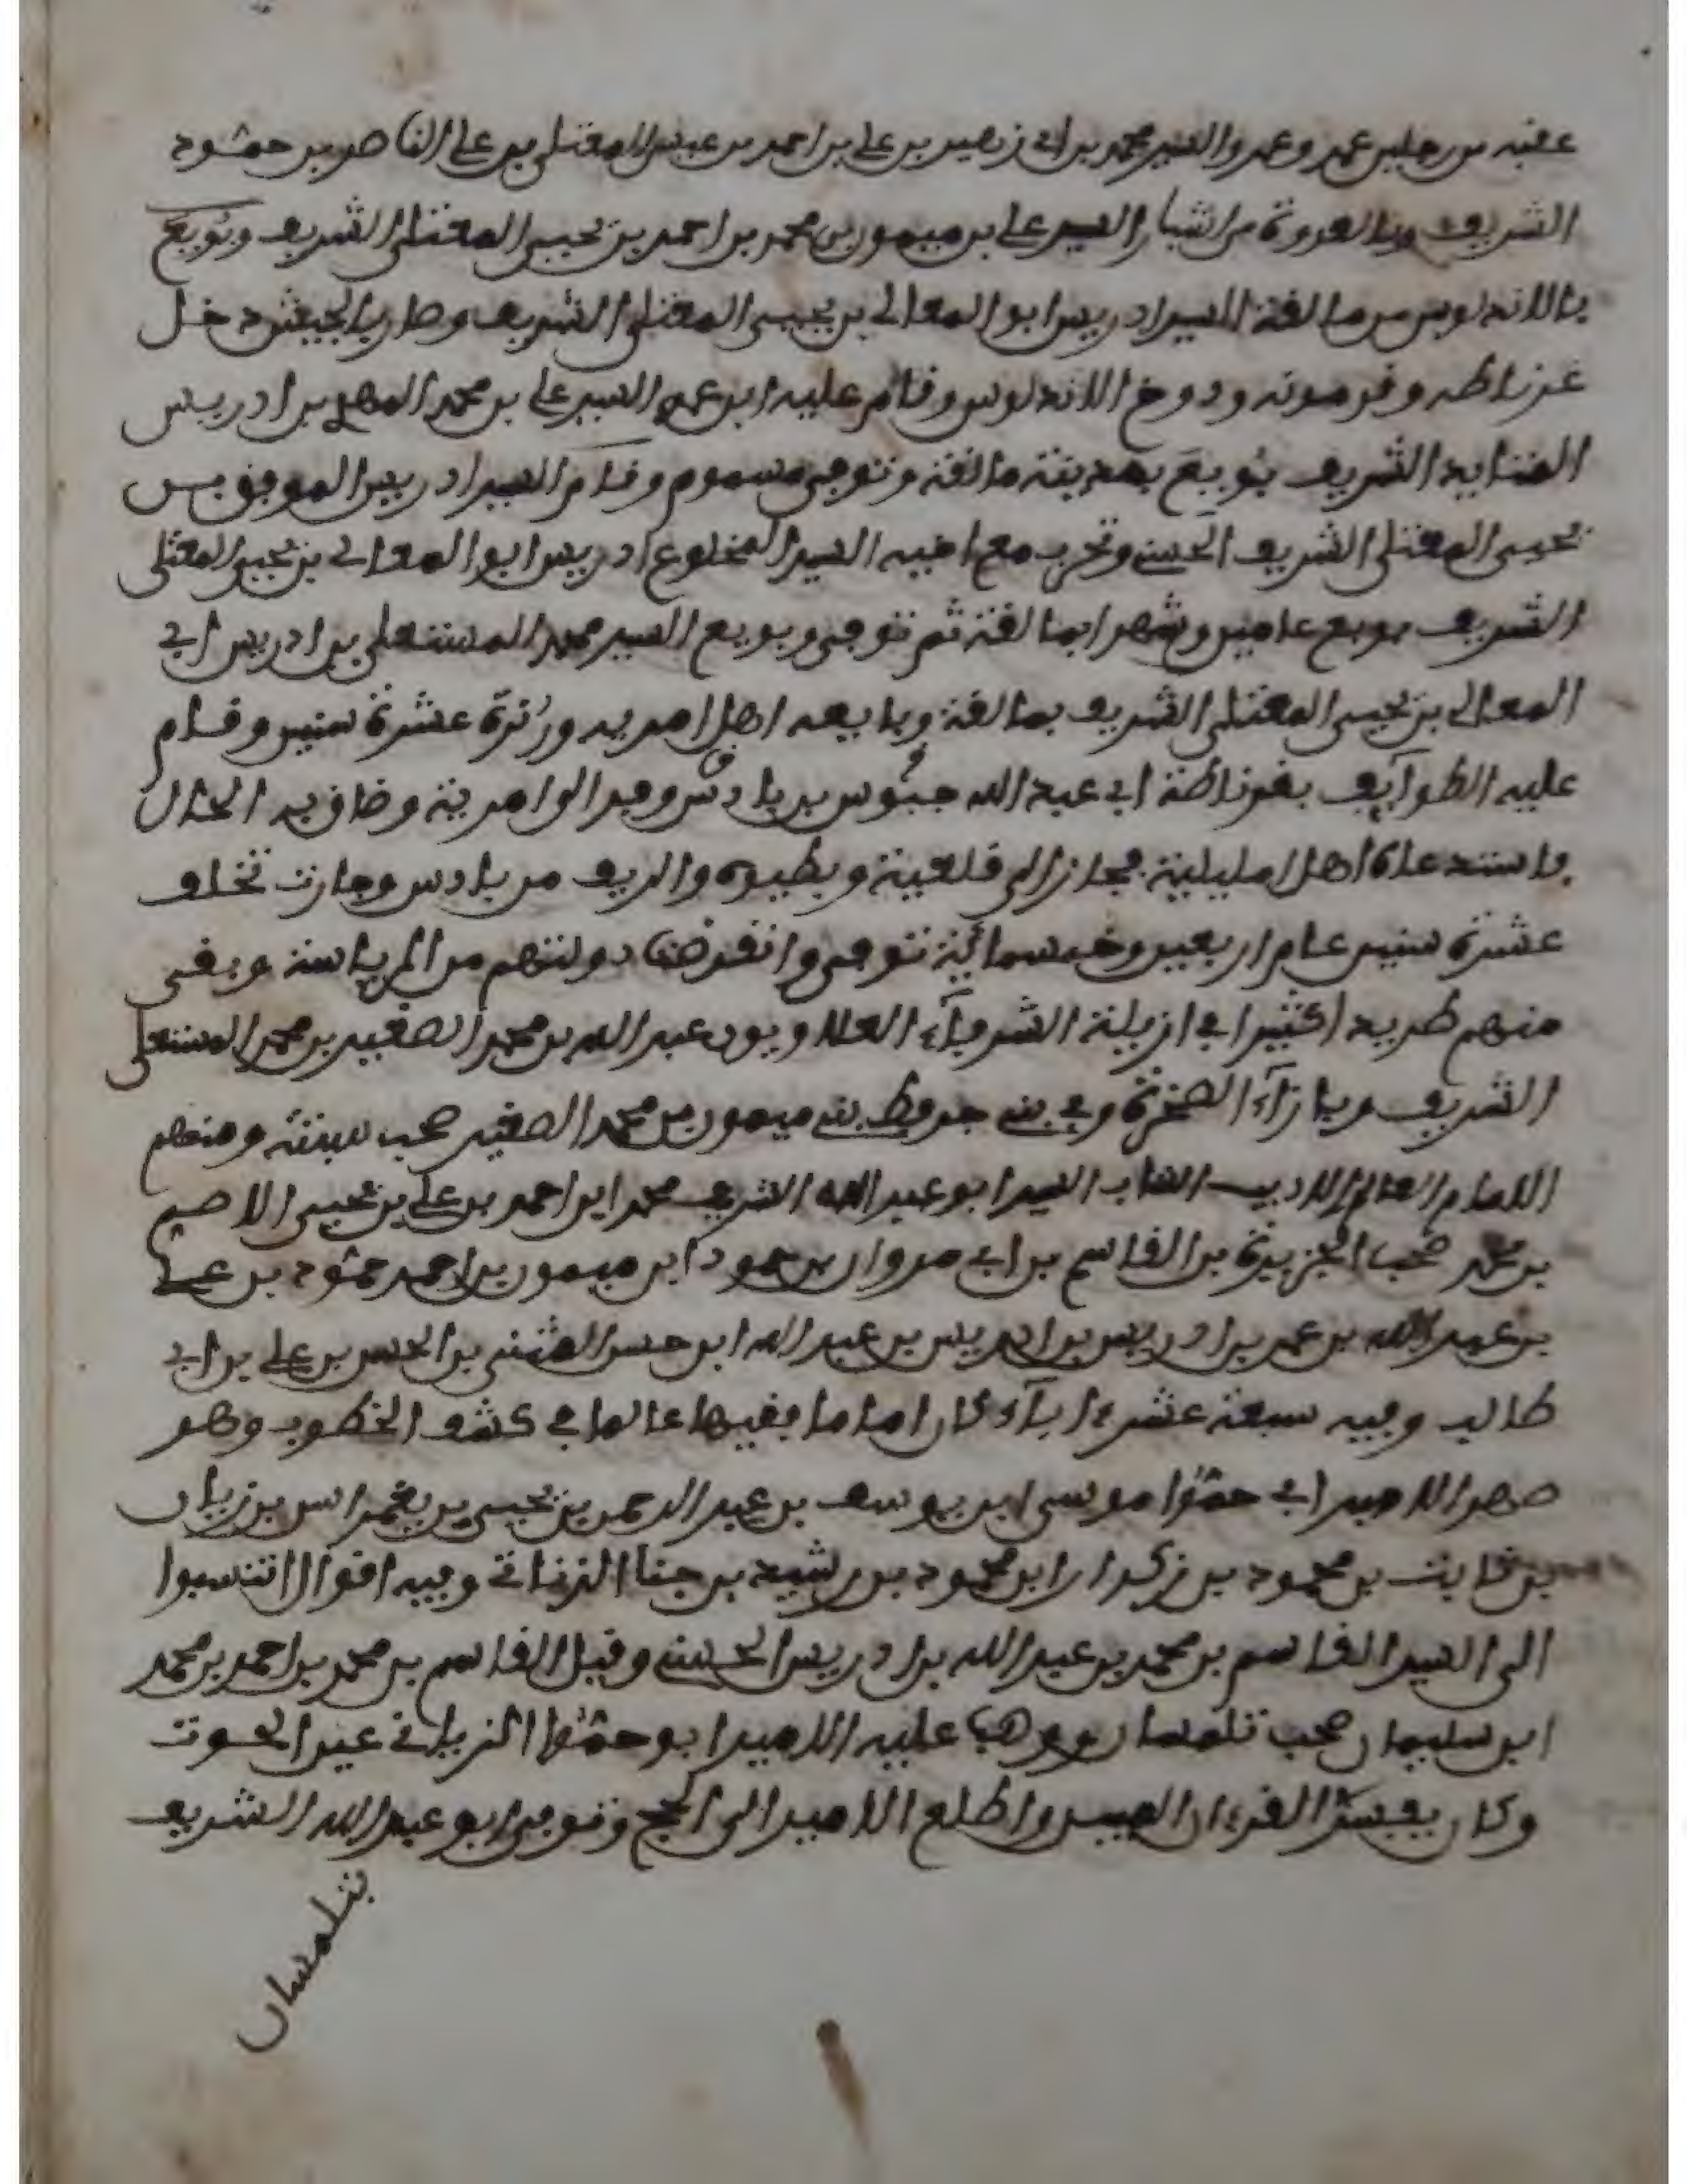 عقبه من جليس عمر وعمر والسيد محمد بن ابي نصير بن علي بن احمد بن المعتلي بن علي الناصر بن حمود
الشريف العدوة من السيد علي بن ميمون بن محمد بن احمد بن يحيى المعتلي الشريف وبويع
بالاندلوس من مالفة السيد ادريس ابو المعالي بن يحيى المعتلي الشريف وصار بالجيش دخل
غرناطه وقرمونه ودوخ الاندلوس وقام عليه ابن عمه السيد علي بن محمد المهدي بن ادريس
الشريف بويع بمدينة مالفة وتوفى مسموم وقام السيد ادريس الموفق بن
يحيى المعتلي الشريف الحسني وتحرب مع اخيه السيد المخلوع ادريس ابو المعالي بن يحيى المعتلي
الشريف بويع عامين وشهرا بمالفة ثم توفى وبويع السيد محمد المستعلي بن ادريس ابي
المعالي بن يحيى المعتلي الشريف بمالفة وبايعه اهل امرية عشرة سنين وقام
عليه الطوآيف بغرناطة ابي عبد الله حبوس بن باديس وفر الى امرية وضاق به الحال
فاستدعاه اهل امليلية فجاز الى قلعية وبطيوة والريف من بادس وجازت تخلف
عشرة سنين عام اربعين وخمسمائية توفى وانقرضت دولتهم من الرياسة وبقى
منهم طريدا كثيرا في ازيلة الشرفآء العلاويون عبد الله بن محمد الصغير بن محمد المستعلي
الشريف وبازآء الصخرة وفي بني جرفط بني ميمون بن محمد الصغير صحب سبتة ومنهم
الامام العالم الاديب السيد ابو عبد الله الشريف محمد ابن احمد بن علي بن يحيى الاصم
بن محمد صحب الجزيرة بن القاسم بن ابي مروان بن حمود ابن ميمون بن احمد حمود بن علي
بن عبيد الله بن عمر بن ادريس بن ادريس بن عبد الله ابن حسن المثنى بن الحسن بن علي بن ابي
طالب وفيه سبعة عشر ابآء كان اماما فقيها عالما في كشف الخطوب وهو
صهر الامير ابي حموا موسى ابن يوسف بن عبد الرحمن بن يحيى بن يغمراسن بن زيان
بن ثابت بن محمود بن زكرار ابن محمود بن رشيد بن جنا الزناتي وفيه اقوال انتسبوا
الى السيد القاسم بن محمد بن عبد الله بن ادريس الحسني وقيل القاسم بن محمد بن احمد بن محمد
ابن سليمان صحب تلمسان ووهب عليه الامير ابو حموا الزياني عين الحوت
وكان يفسر القرءان المبين واطلع الامير الى الحج وتوفى ابو عبد الله الشريف
بتلمسان